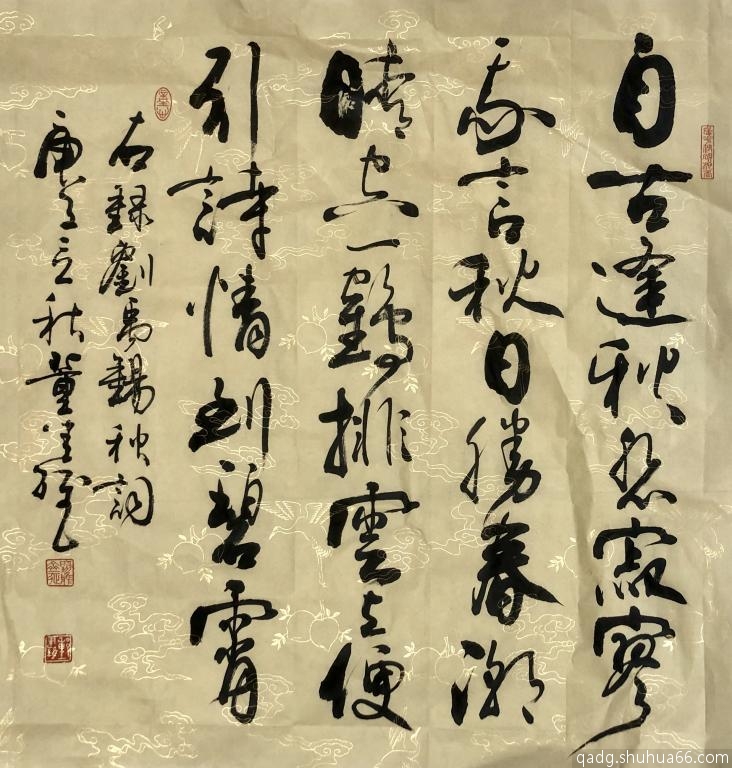 自古逢秋悲寂寥
我言秋日勝春潮
晴空一鶴排雲上便
引詩情到碧霄
右録劉禹錫秋詞
立秋董
qadg.shuhua66.com